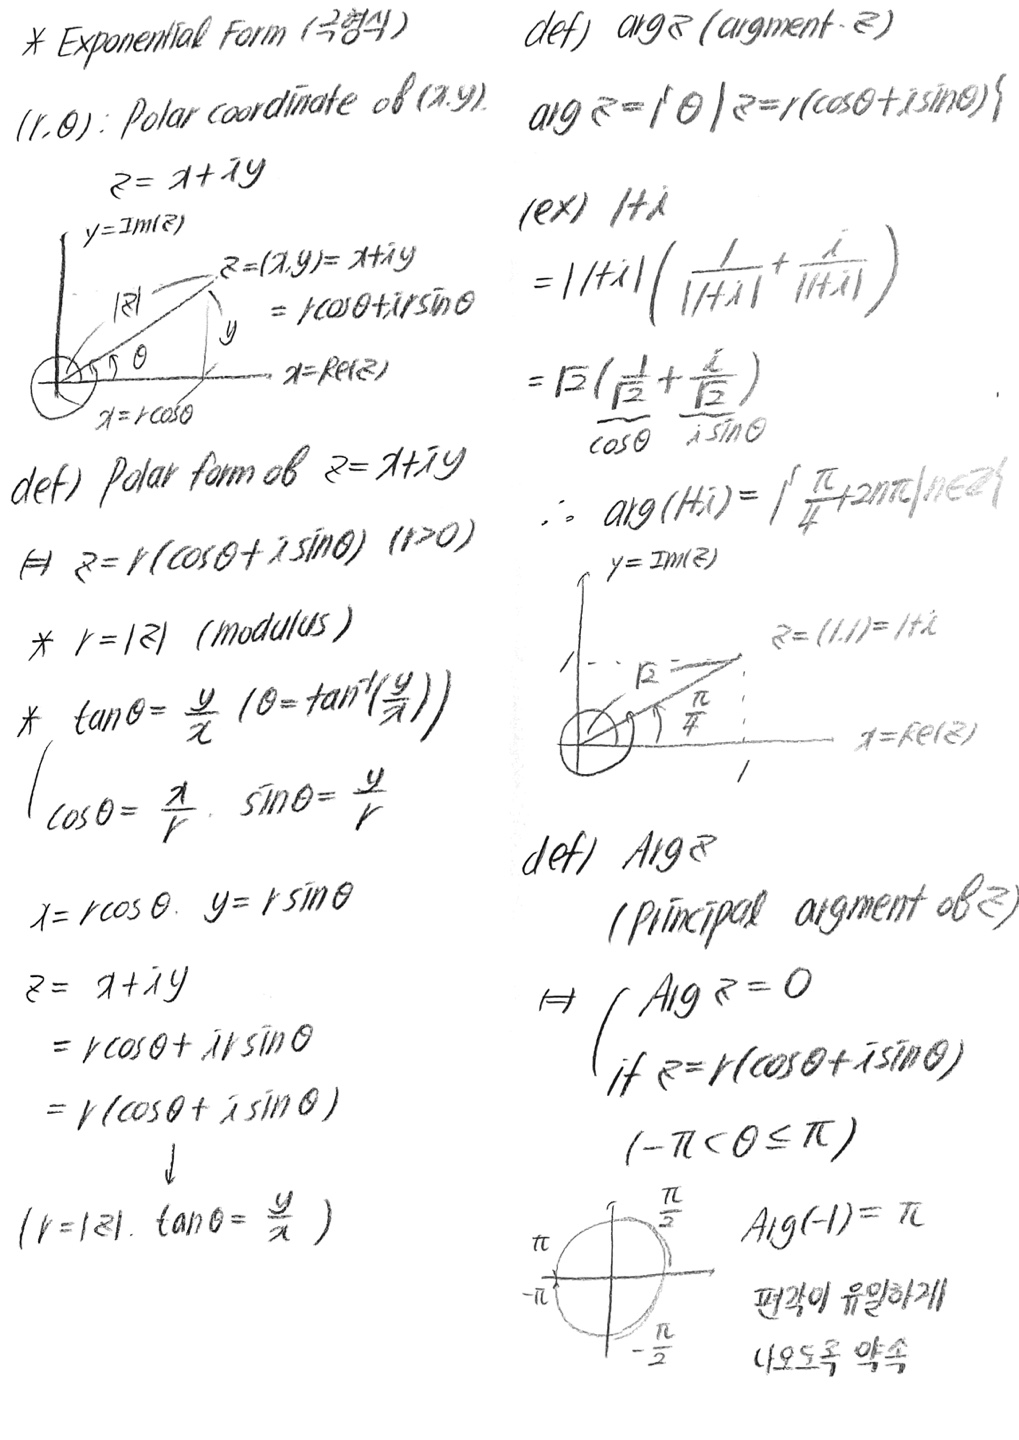 * Exponential Form (극형식)
(r,θ): Polar coordinate of (x,y).
z = x+iy
y=Im(z)
z=(x,y)= x+iy
|z|
= rcosθ+irsinθ
y
θ
x=Re(z)
x=rcosθ
def) Polar form of z = x+iy
⇔ z=r(cosθ+isinθ) (r>0)
* r=|z| (modulus)
* tanθ= y/x (θ=tan⁻¹(y/x))
cosθ= x/r . sinθ= y/r
x=rcosθ. y=rsinθ
z= x+iy
= rcosθ+irsinθ
= r(cosθ+isinθ)
↓
(r=|z|. tanθ= y/x )
def) argz (argment z)
arg z={θ|z=r(cosθ+isinθ)}
(ex) 1+i
=|1+i|( 1/|1+i| + i/|1+i| )
=√2( 1/√2 + i/√2 )
cosθ isinθ
∴ arg(1+i)={ π/4+2nπ|n∈Z}
y=Im(z)
z=(1.1)=1+i
1
√2
π/4
x=Re(z)
1
def) Arg z
(principal argment of z)
⇔ Arg z = θ
if z=r(cosθ+isinθ)
(-π<θ≤π)
π/2
Arg(-1)= π
π
-π
편각이 유일하게
-π/2
나오도록 약속